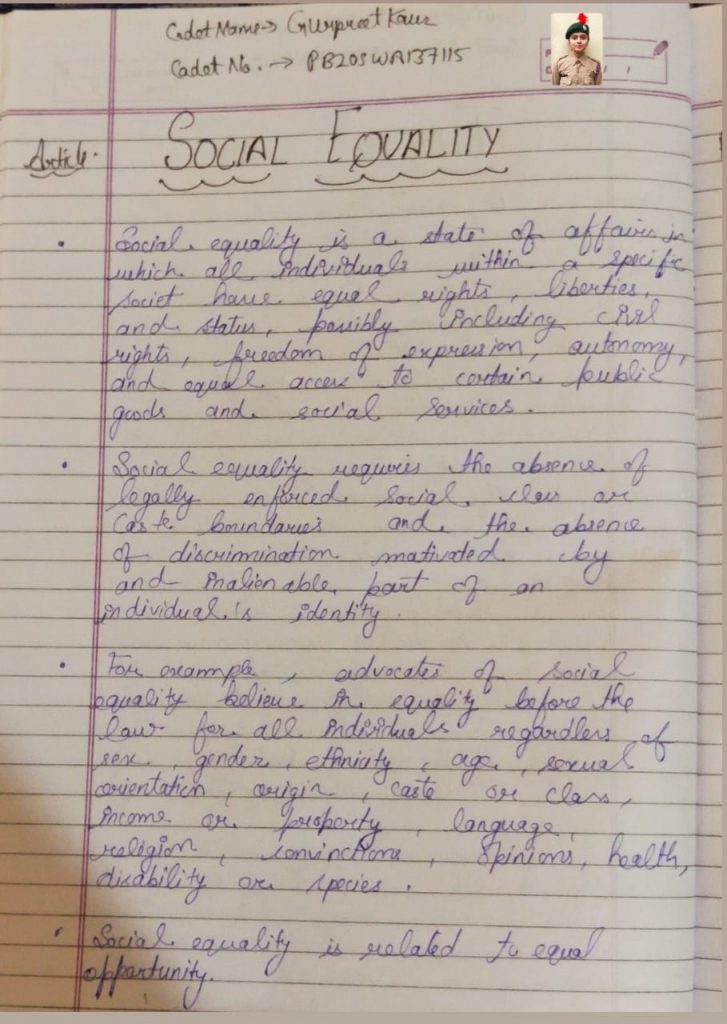 Cadet Name → Gurpreet Kaur
Cadet No. → PB20SWA137115
Article.
SOCIAL EQUALITY
• Social equality is a state of affairs in
which all individuals within a specific
societ have equal rights, liberties,
and status, possibly including civil
rights, freedom of expression, autonomy,
and equal access to certain public
goods and social services.
• Social equality requries the absence of
legally enforced social class or
Caste boundaries and the absence
of discrimination mativated by
and inalienable part of an
individual's identity.
• For example, advocates of social
equality believe in equality before the
law for all individuals regardless of
sex, gender, ethnicity, age, sexual
orientation, origin, caste or class,
income or property, language,
religion, convinctions, opinions, health,
disability or species.
• Social equality is related to equal
opportunity.